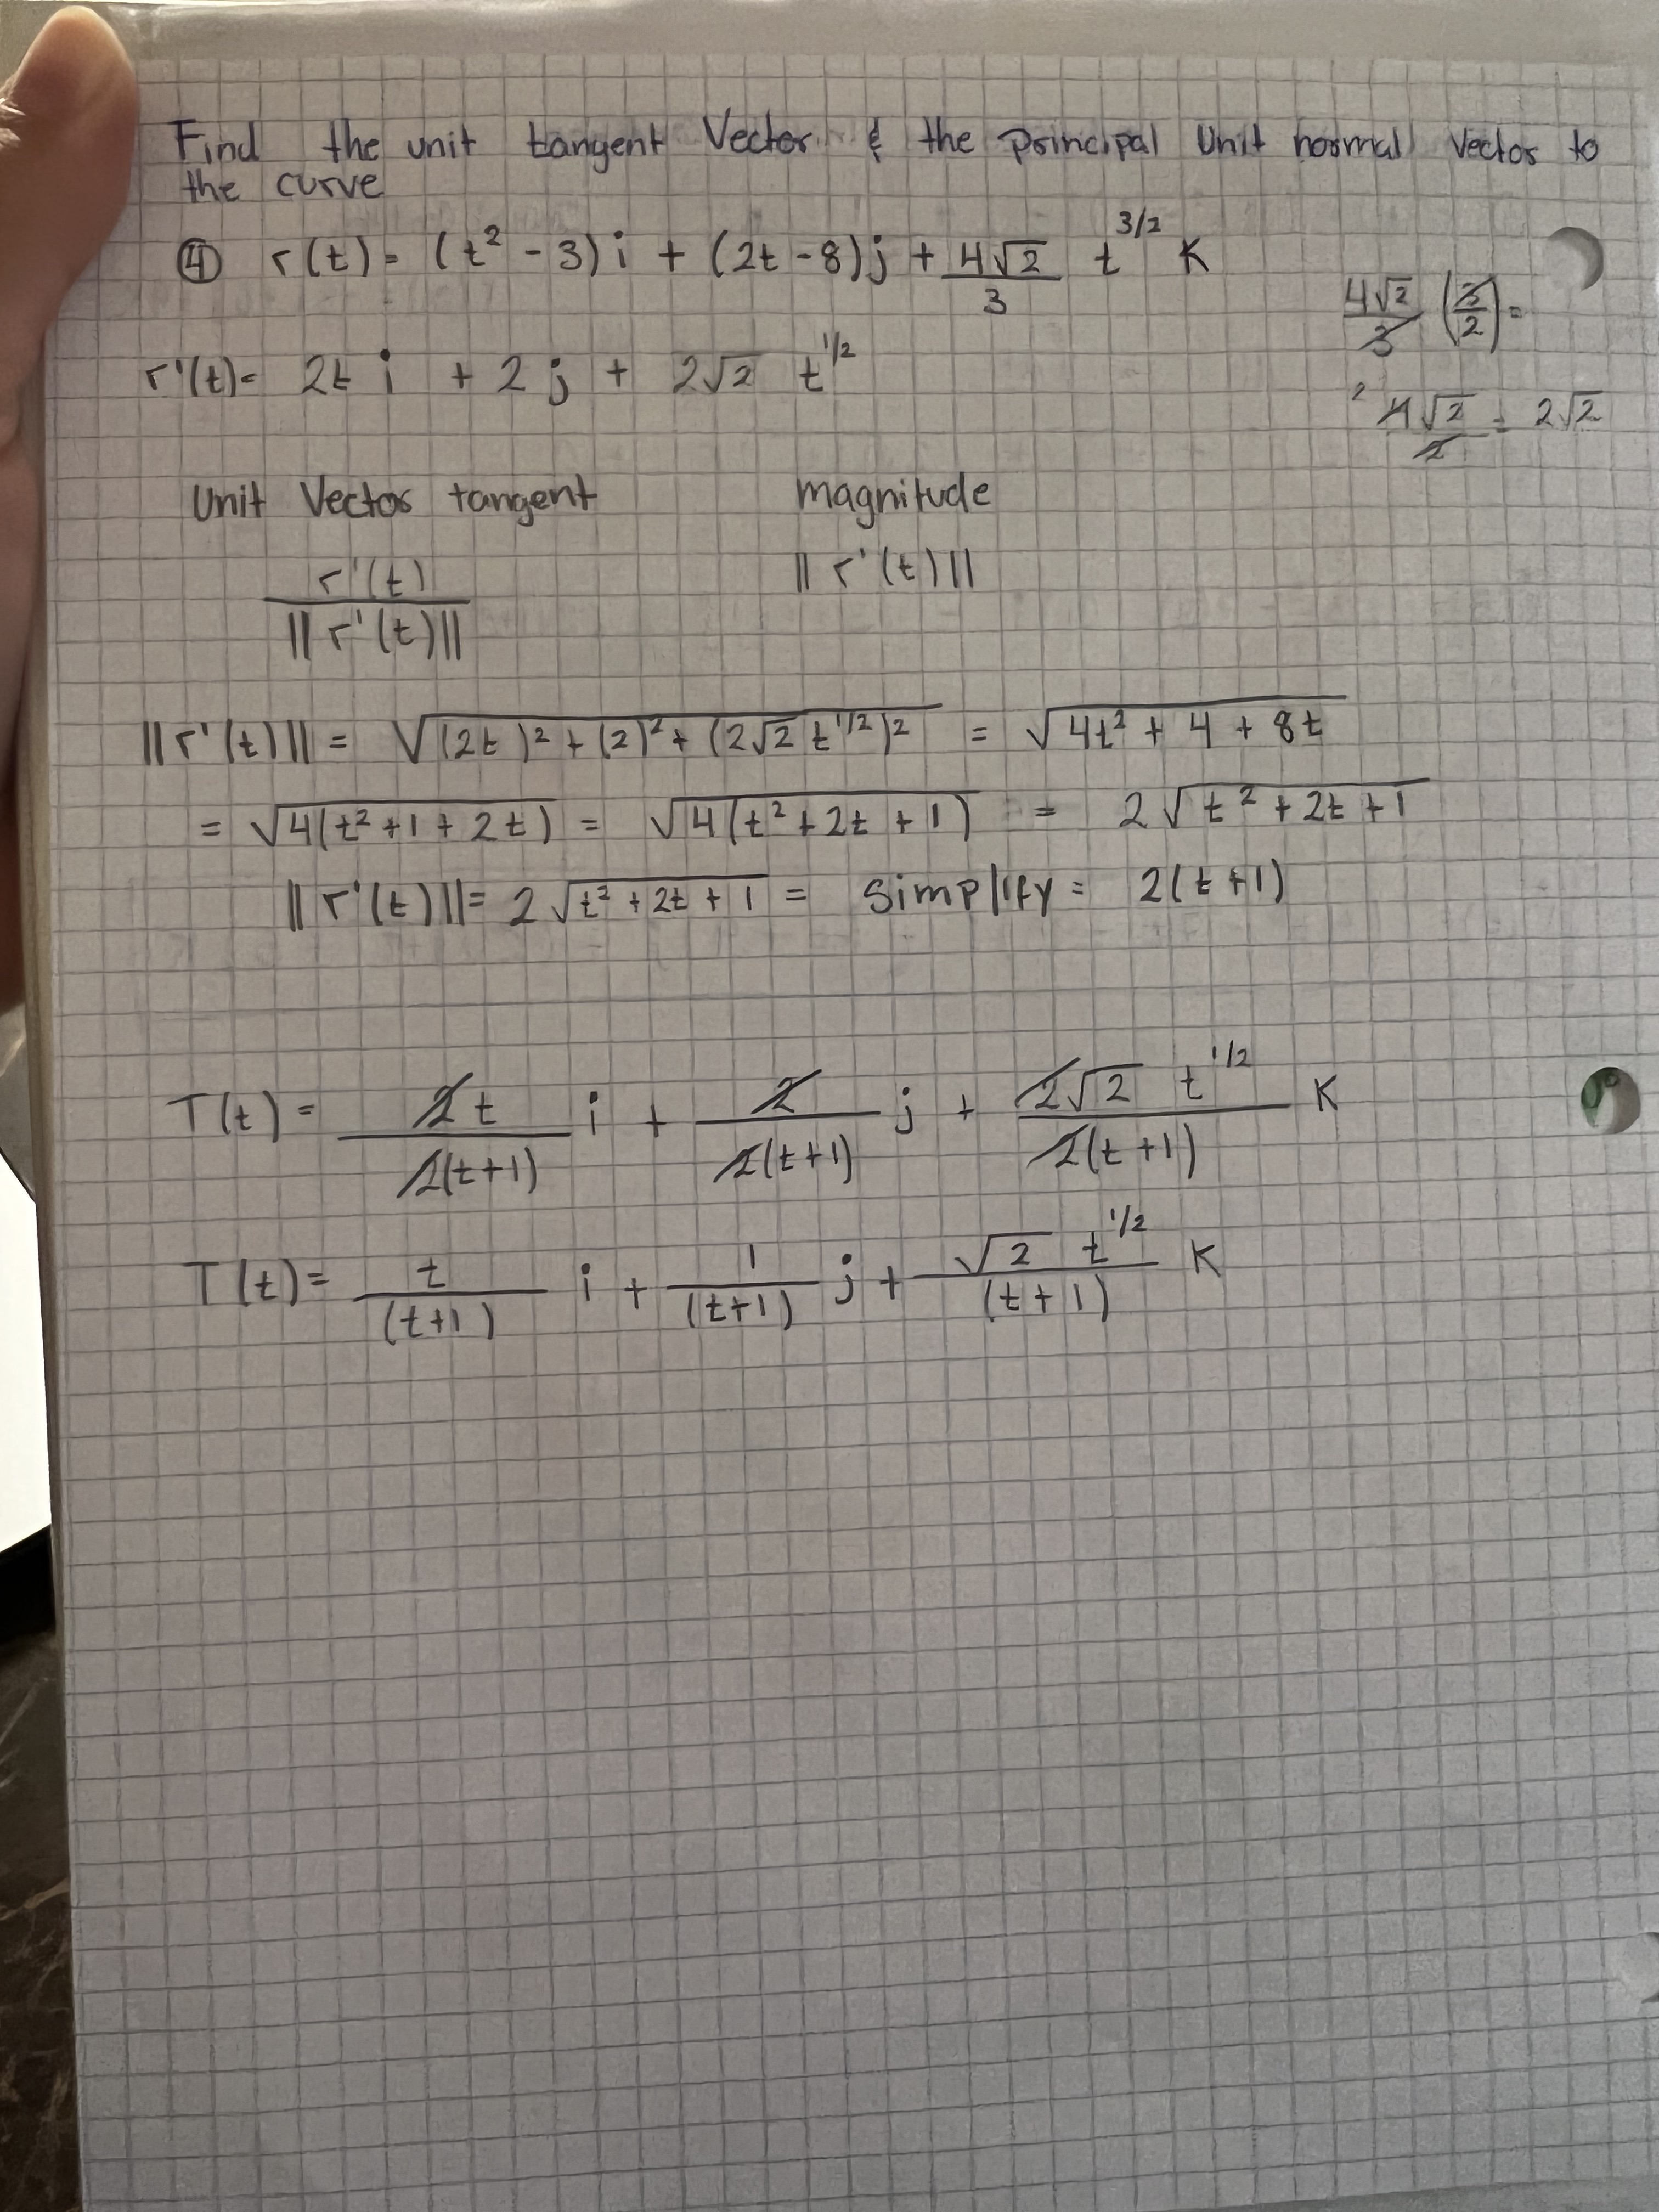 Find the unit tangent Vector & the principal Unit normal Vector to
the curve
④ r(t) = (t² - 3)i + (2t - 8)j + 4√2/3 t^3/2 K
4√2/3 (3/2) =
r'(t) = 2t i + 2 j + 2√2 t^1/2
2 4√2/2 = 2√2
Unit Vector tangent magnitude
r'(t)/||r'(t)|| ||r'(t)||
||r'(t)|| = √((2t)² + (2)² + (2√2 t^1/2)²) = √(4t² + 4 + 8t)
= √(4(t² + 1 + 2t)) = √(4(t² + 2t + 1)) = 2√(t² + 2t + 1)
||r'(t)|| = 2√(t² + 2t + 1) = Simplify = 2(t+1)
T(t) = 2t/2(t+1) i + 2/2(t+1) j + 2√2 t^1/2/2(t+1) K
T(t) = t/(t+1) i + 1/(t+1) j + √2 t^1/2/(t+1) K